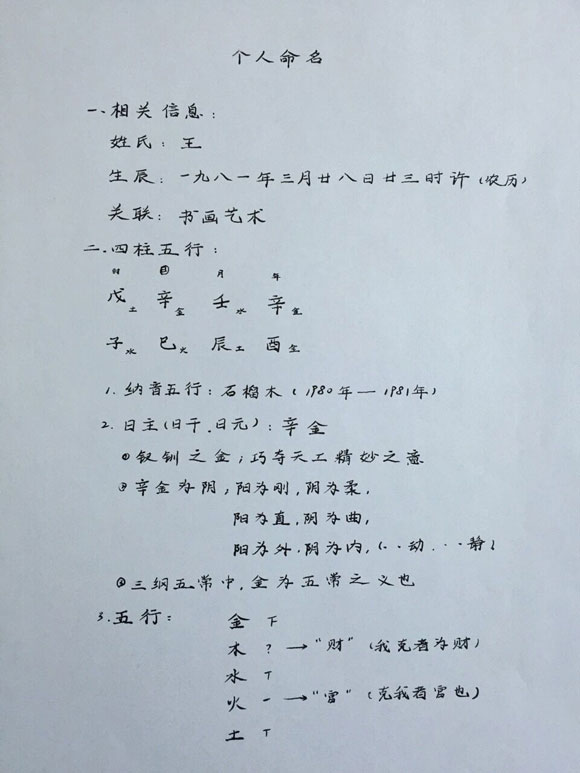 个人命名
一、相关信息：
姓氏：王
生辰：一九八一年三月廿八日廿三时许（农历）
关联：书画艺术
二.四柱五行：
时 日 月 年
戊土 辛金 壬水 辛金
子水 巳火 辰土 酉金
1.纳音五行：石榴木（1980年—1981年）
2.日主（日干.日元）：辛金
①钗钏之金；巧夺天工精妙之意
②辛金为阴，阳为刚，阴为柔，
阳为直，阴为曲，
阳为外.阴为内，（··动，···静）
③三纲五常中，金为五常之义也
3.五行：
金 下
木 ？→“财”（我克者为财）
水 丅
火 一→“官”（克我者官也）
土 丅